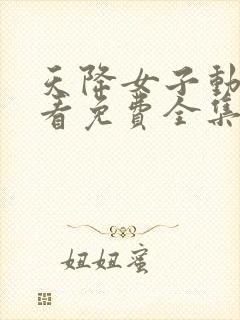 天降女子動
看免費全集
妞妞蜜